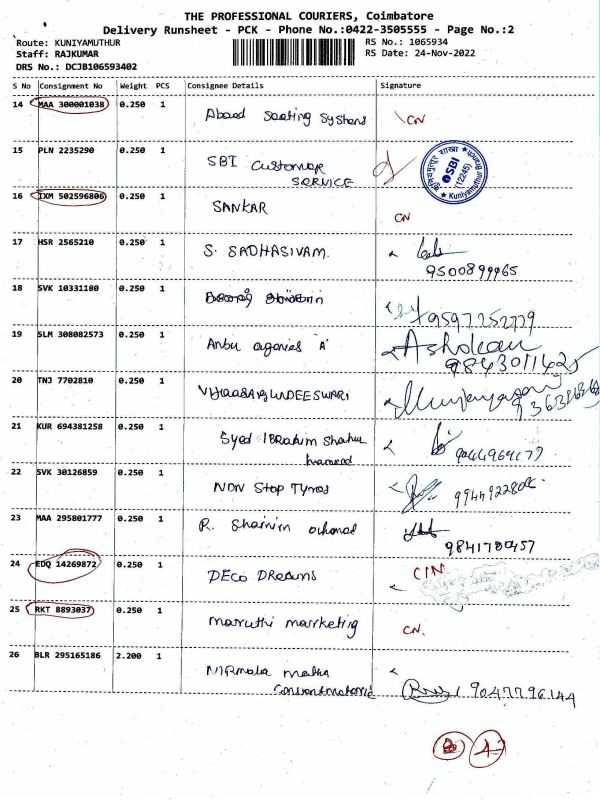 THE PROFESSIONAL COURIERS, Coimbatore
Delivery Runsheet - PCK - Phone No.:0422-3505555 - Page No.:2
Route: KUNIYAMUTHUR
Staff: RAJKUMAR
DRS No.: DCJB106593402
RS No.: 1065934
RS Date: 24-Nov-2022
S No Consignment No Weight PCS Consignee Details Signature
14 MAA 300001038 0.250 1 CN
15 PLN 2235290 0.250 1 SBI Customer
SERVICE
SBI
(12245)
Kuniyamuthur Branch
16 IXM 502596806 0.250 1 SANKAR CN
17 HSR 2565210 0.250 1 S. SADHASIVAM
9500899965
18 SVK 10331180 0.250 1
9597252729
19 SLM 308082573 0.250 1 Anbu agencies 'A' Ashokan
9843011425
20 TNJ 7702810 0.250 1
21 KUR 694381258 0.250 1 Syed Ibrahim
22 SVK 30126859 0.250 1 NON Stop Tyres
23 MAA 295801777 0.250 1 R.
9841780457
24 EDQ 14269872 0.250 1 DECO DREAMS CN
25 RKT 8893037 0.250 1 maruthi marketing CN.
26 BLR 295165186 2.200 1 NIRmala matha
9047796144